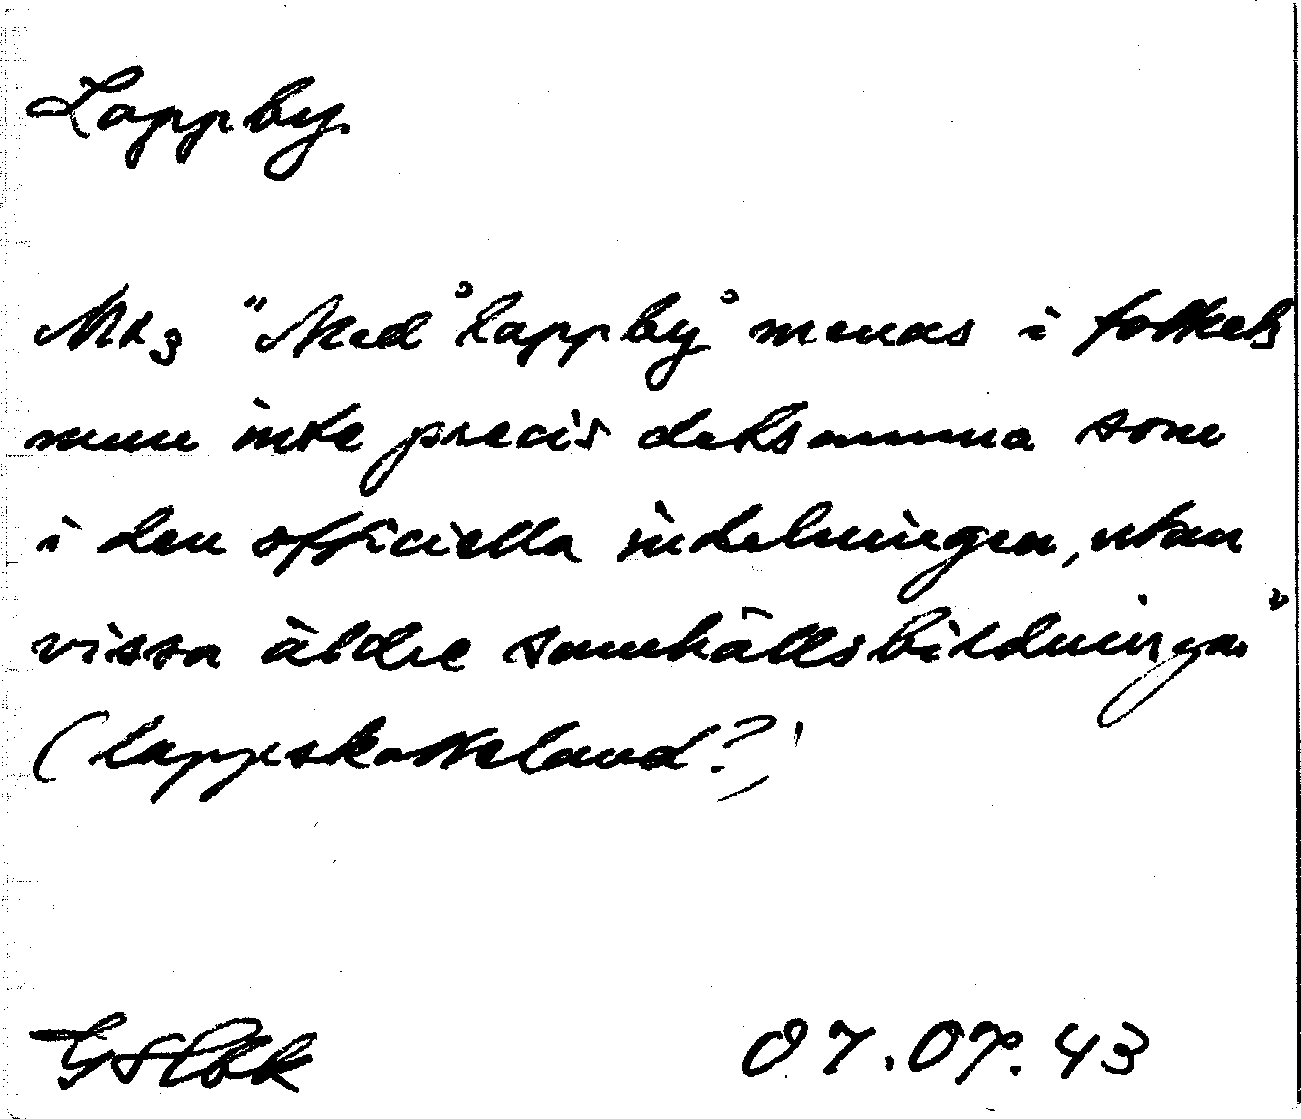 Lappby
"Med "lappby" menas i folkets
mun inte precis detsamma som
i den officiella indelningen, utan
vissa äldre samhällsbildningar"
(lappeskatteland?)
07.07.43